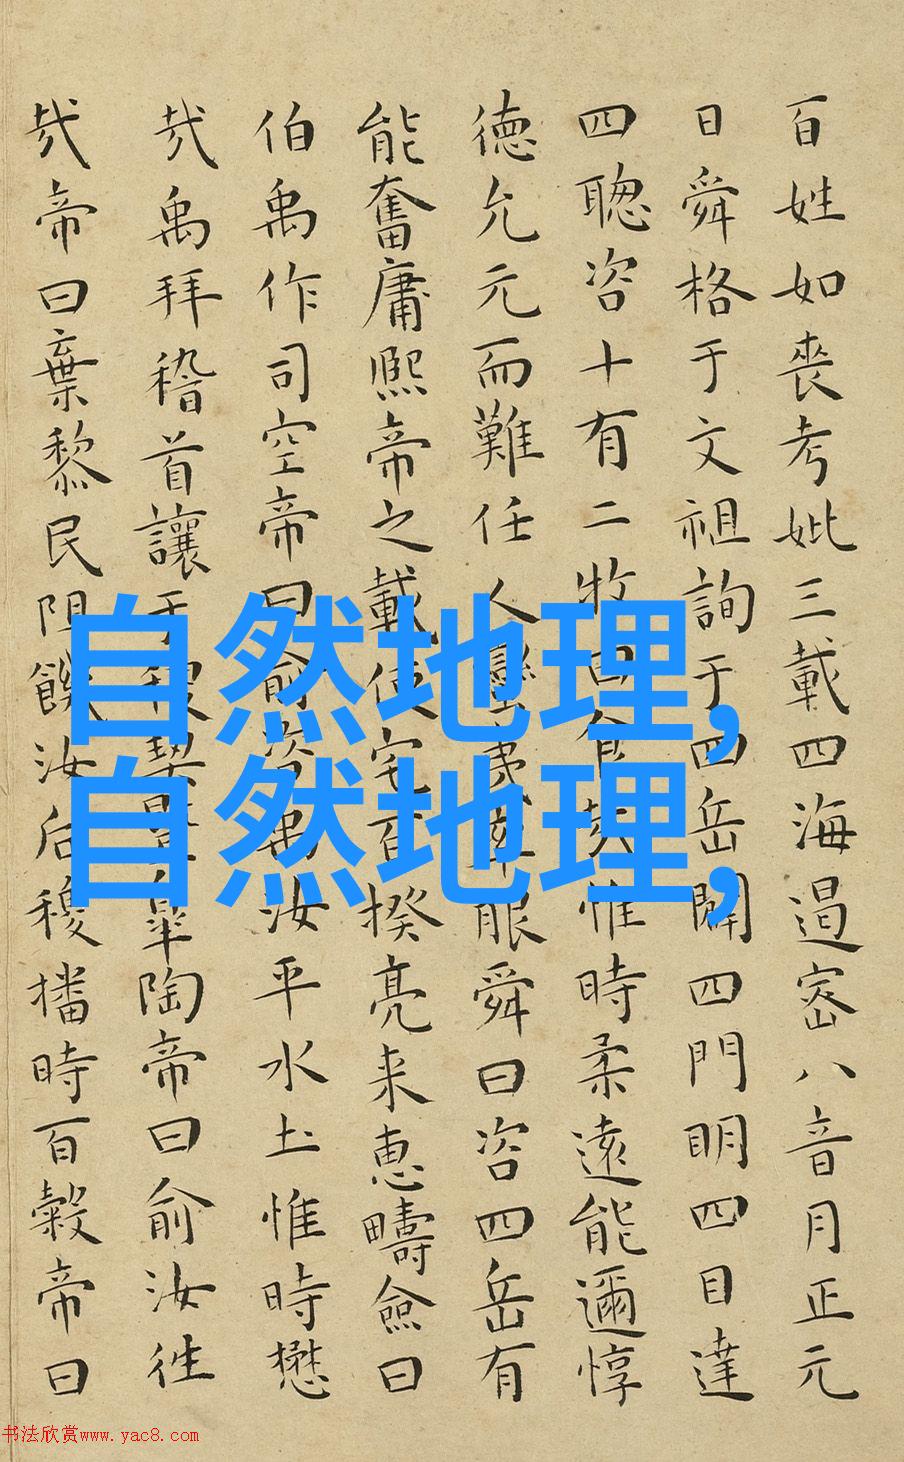 百姓如喪考妣三載四海遏密八音月正元
日舜格于文祖詢于四岳闢四門明四目達
四聰咨十有二牧曰食哉惟時柔遠能邇惇
德允元而難任人蠻夷率服舜曰咨四岳有
能奮庸熙帝之載使宅百揆亮采惠疇僉曰
伯禹作司空帝曰俞咨禹汝平水土惟時懋
哉禹拜稽首讓于稷契暨皋陶帝曰俞汝往
哉帝曰棄黎民阻饑汝后稷播時百穀帝曰
自然地理,
自然地理,
书法欣赏www.yac8.com